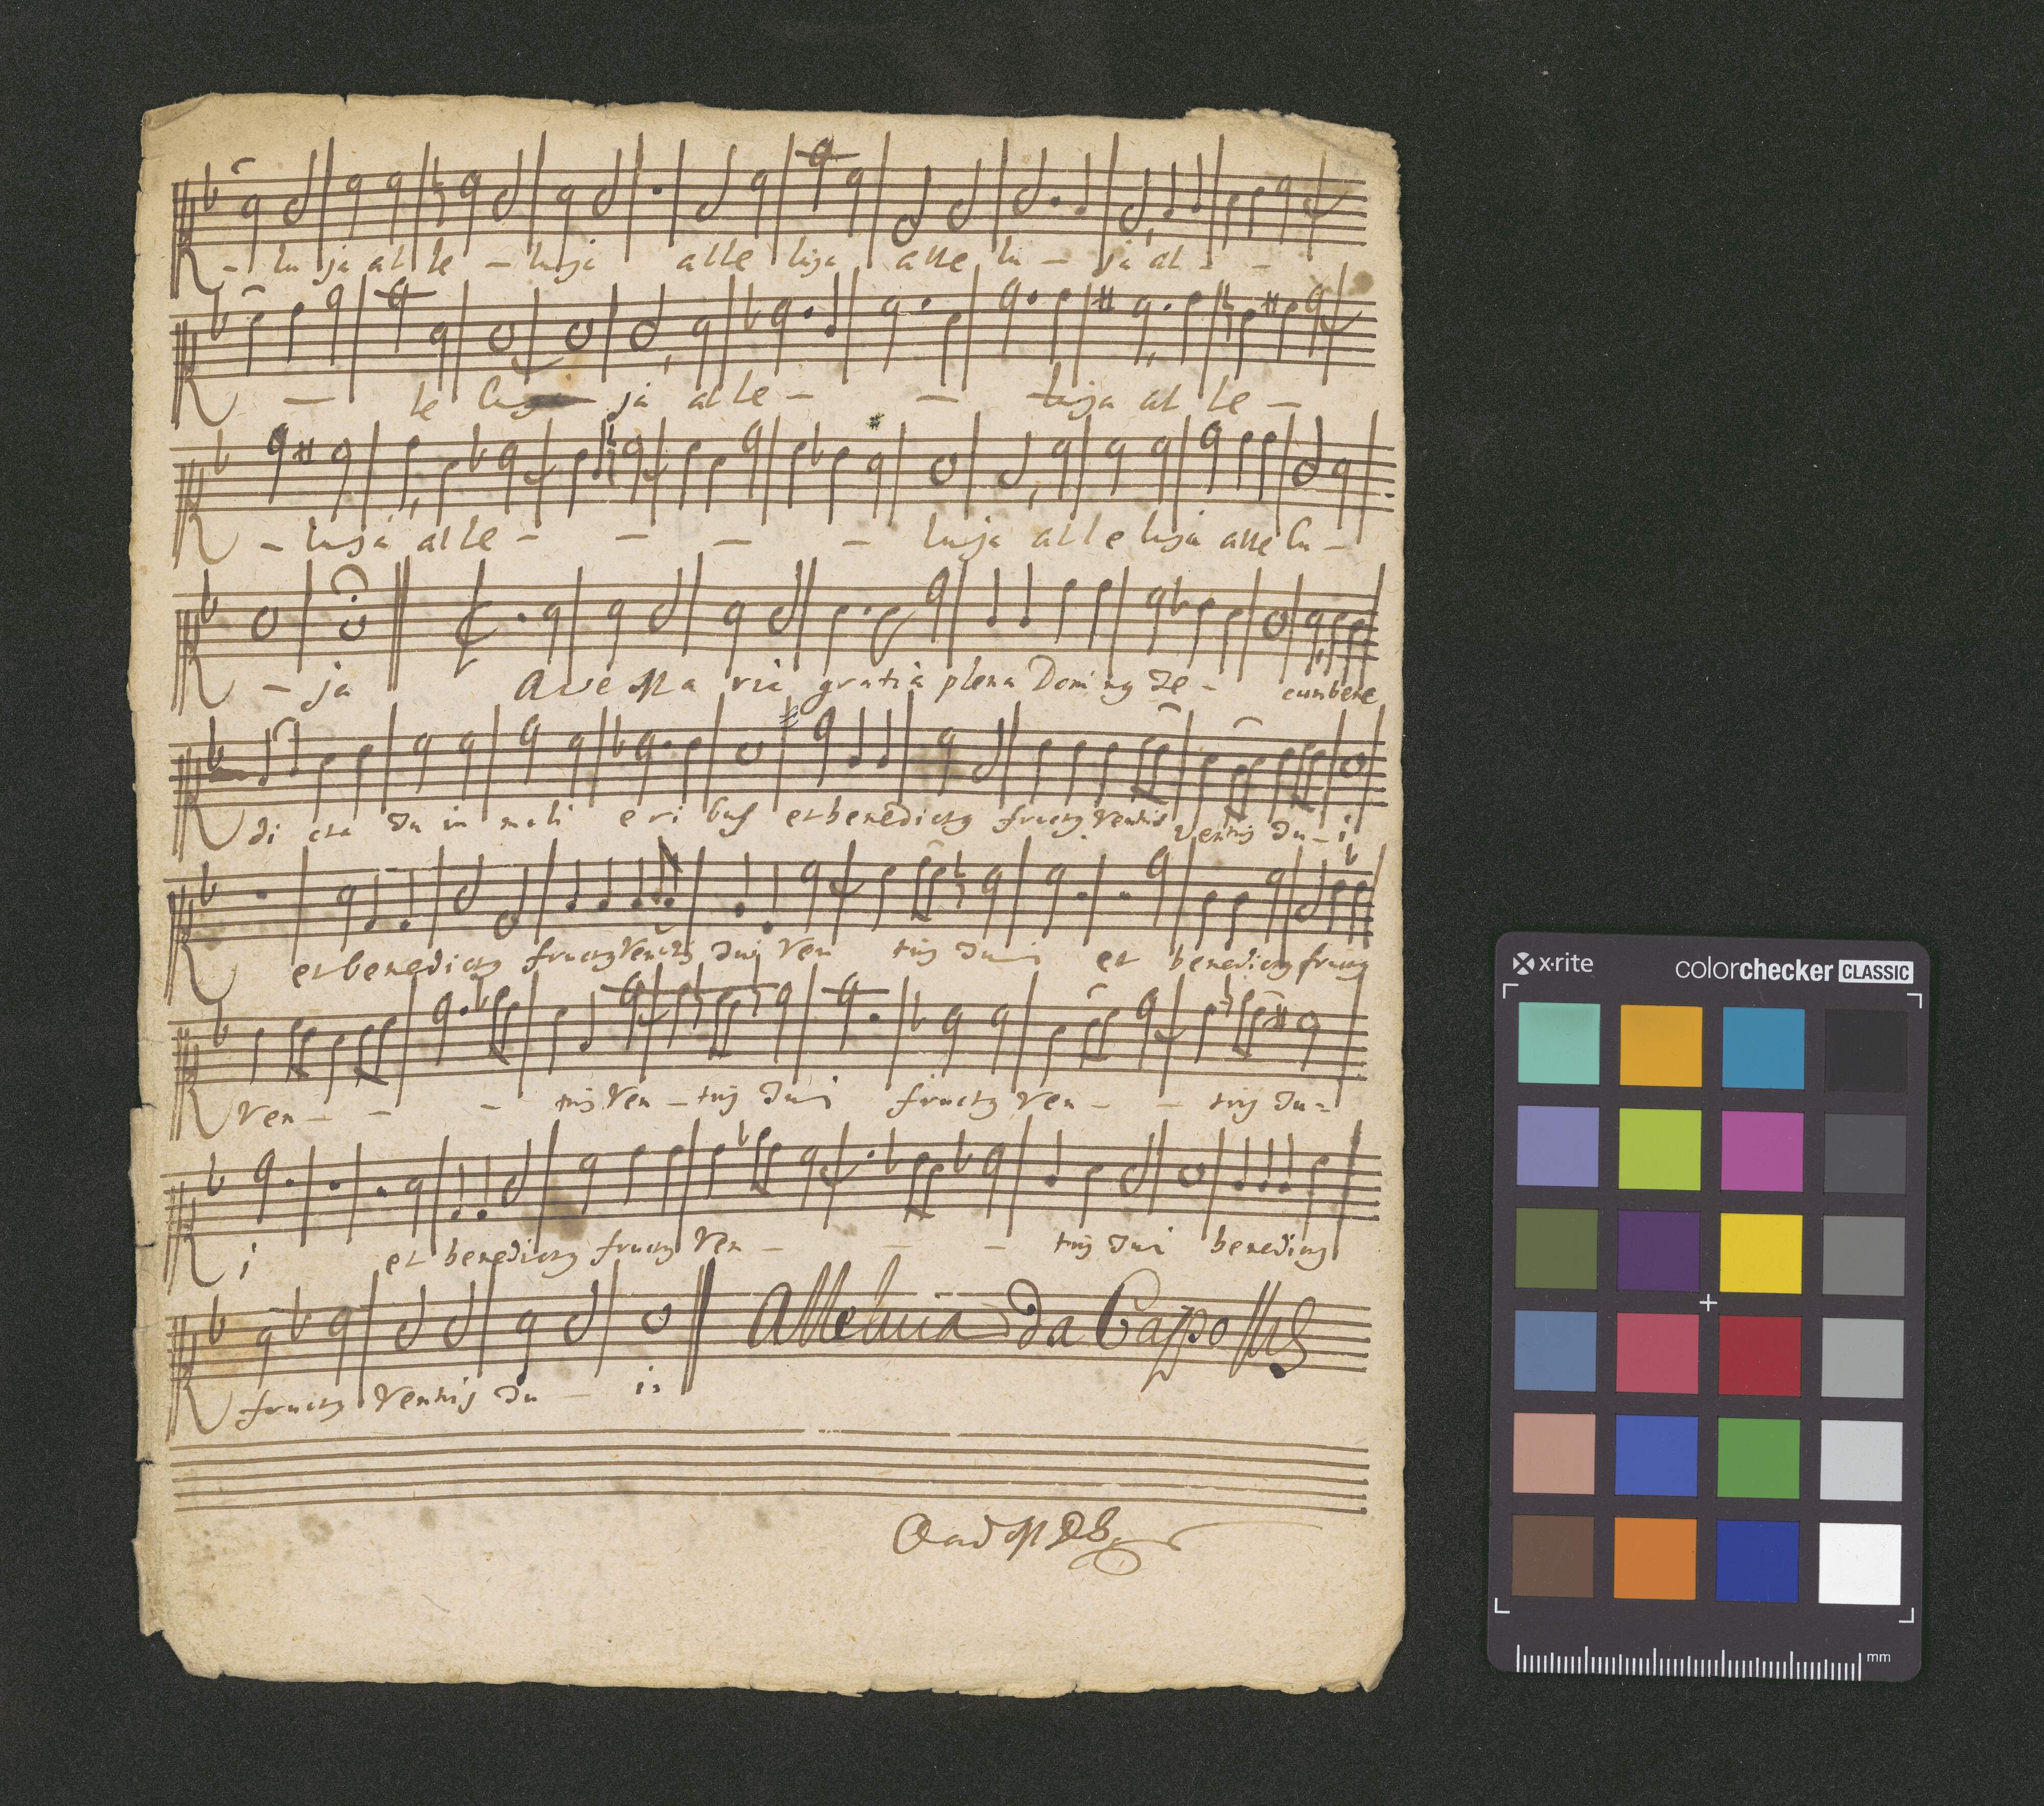 - lu ja al le - luja alle luja alle lu - ja al - -
- le luja ja alle - - luja al le -
- luja alle - - - - luja alle luja alle lu -
- ja Ave Ma ria gratia plena Dominꝰ te - cum bene
di cta tu in muli eri bus et benedictꝰ fructꝰ Ventris Ventris tu - i
et benedictꝰ fructꝰ Ventris tui Ven tris tui et benedictꝰ fructꝰ
Ven - - - tris Ven - tris tui fructꝰ Ven - - tris tu -
i et benedictꝰ fructꝰ Ven - - - tris tui benedictꝰ
Alleluia da Capo
fructꝰ Ventris tu - i
x·rite colorchecker CLASSIC
mm